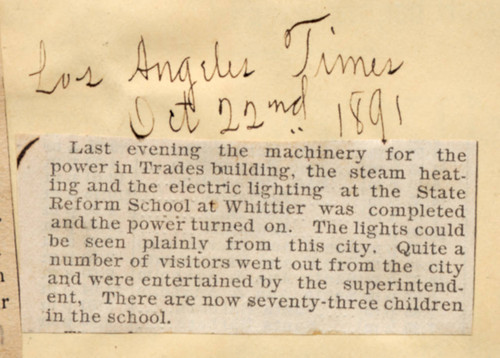 Los Angeles Times
Oct 22nd 1891
Last evening the machinery for the
power in Trades building, the steam heat-
ing and the electric lighting at the State
Reform School at Whittier was completed
and the power turned on. The lights could
be seen plainly from this city. Quite a
number of visitors went out from the city
and were entertained by the superintend-
ent, There are now seventy-three children
in the school.